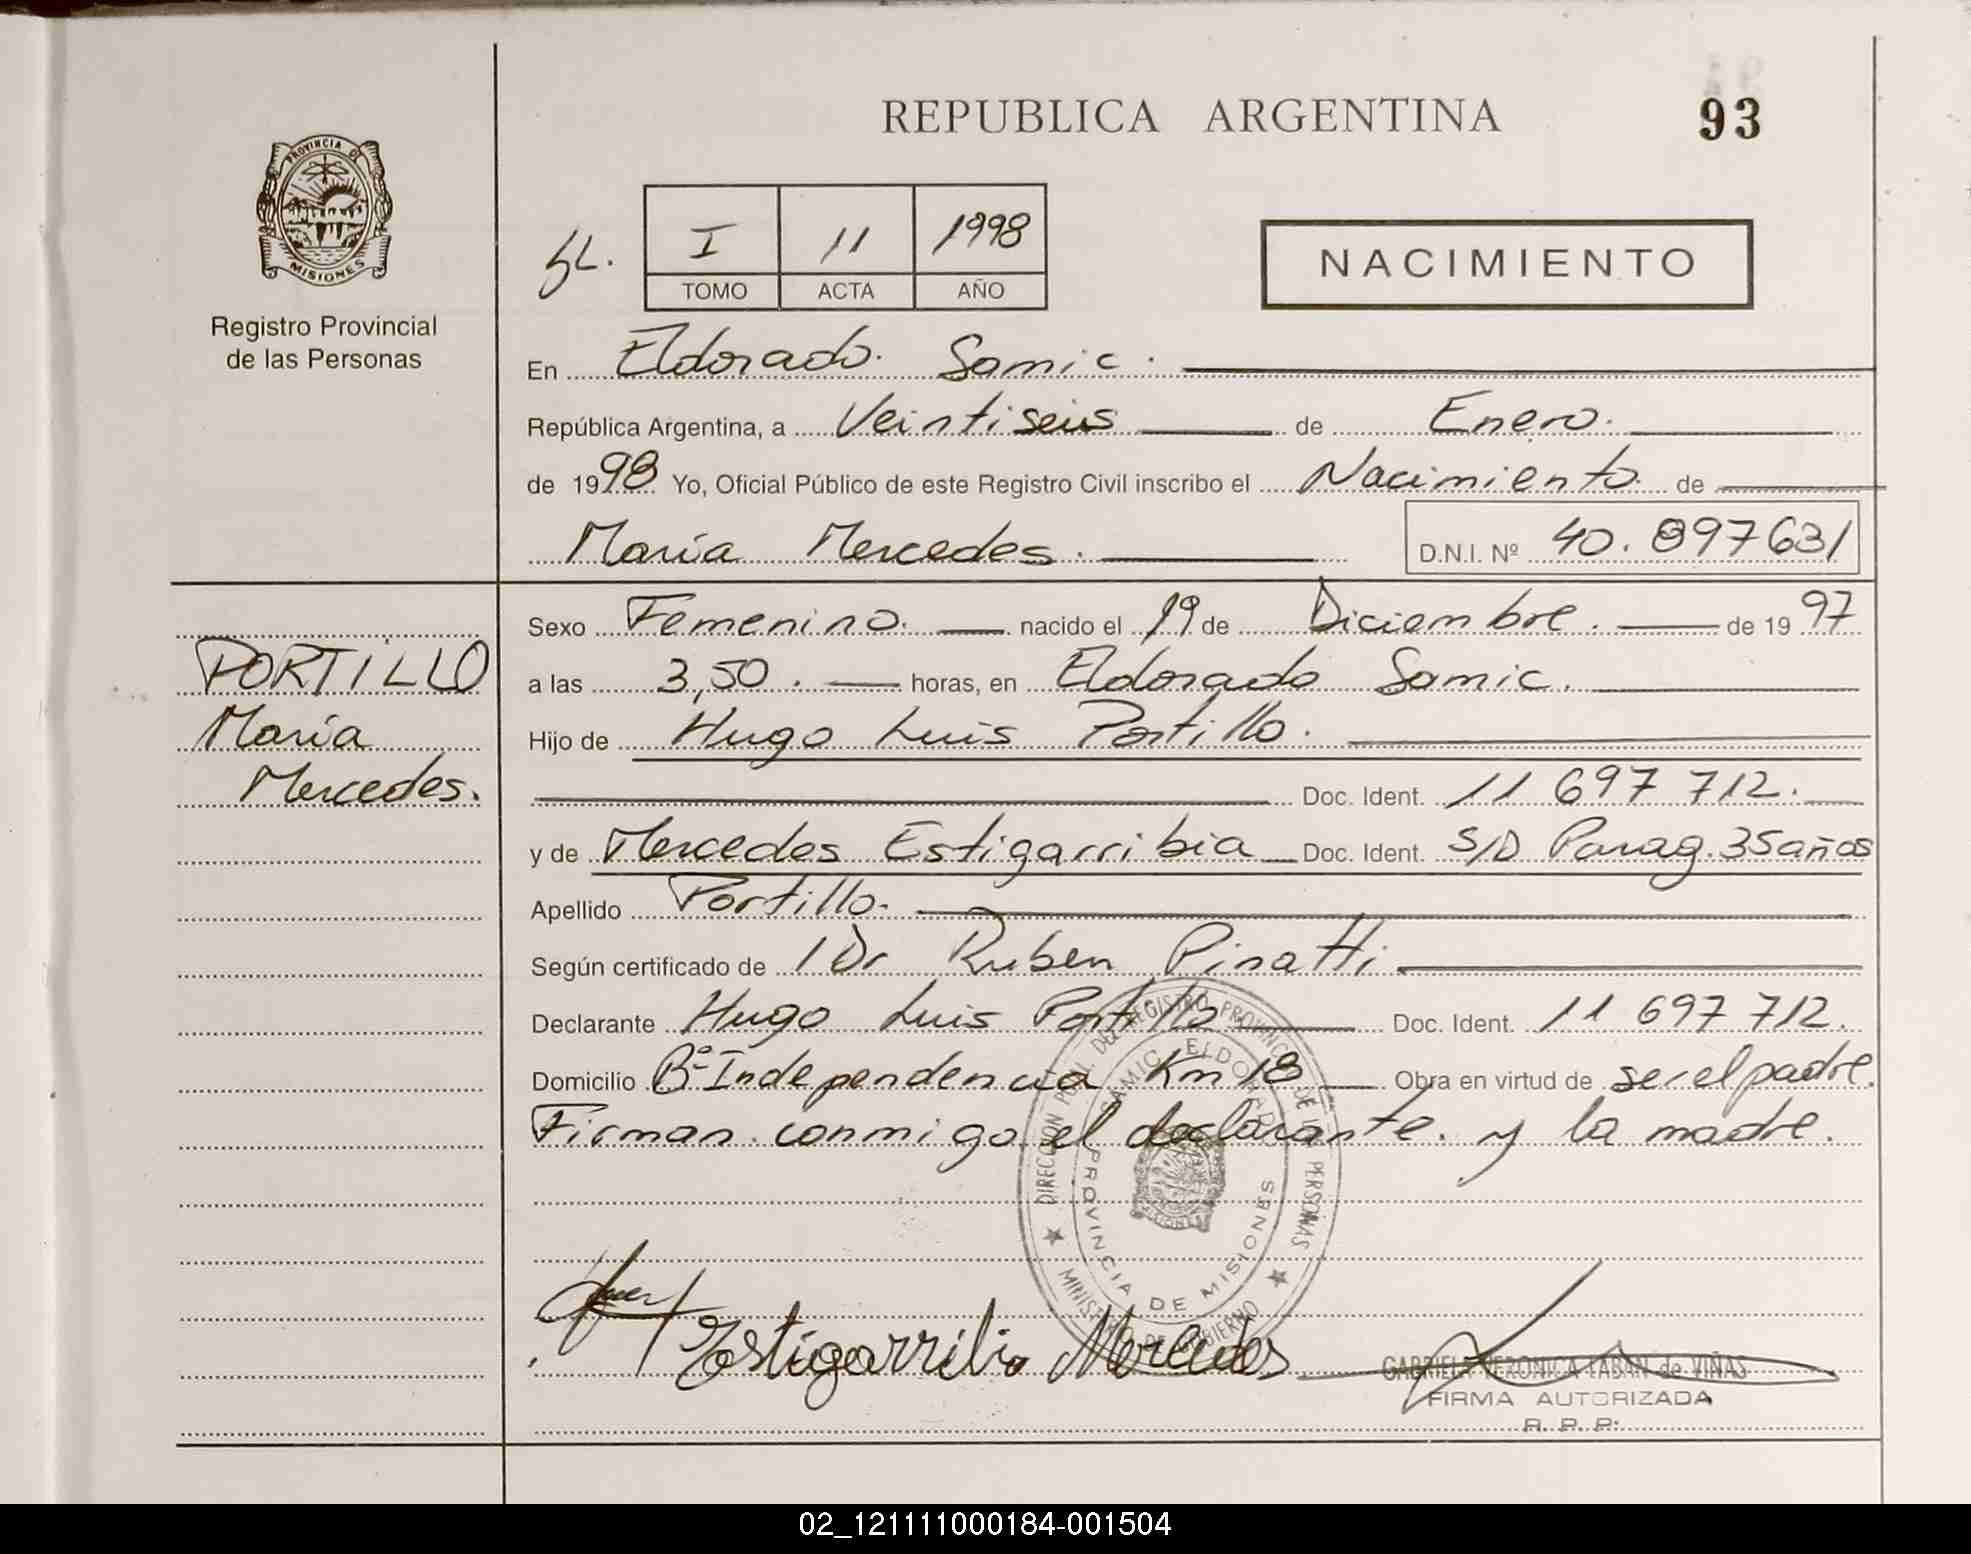 REPUBLICA ARGENTINA
93
PROVINCIA DE
MISIONES
Registro Provincial
de las Personas
I 11 1998
TOMO ACTA AÑO
NACIMIENTO
En Eldorado. Samic.
República Argentina, a Veintiseis de Enero.
de 1998 Yo, Oficial Público de este Registro Civil inscribo el Nacimiento de
María Mercedes. D.N.I. Nº 40.897631
PORTILLO
María
Mercedes.
Sexo Femenino. nacido el 19 de Diciembre. de 1997
a las 3,50. horas, en Eldorado Samic.
Hijo de Hugo Luis Portillo.
Doc. Ident. 11 697 712.
y de Mercedes Estigarribia Doc. Ident. S/D Parag. 35 años
Apellido Portillo.
Según certificado de 1 Dr Ruben Pinatti
Declarante Hugo Luis Portillo Doc. Ident. 11 697 712.
Domicilio Bº Independencia Km 18 Obra en virtud de ser el padre.
Firman conmigo el declarante. y la madre.
DIRECCION POL. DEL REGISTRO PROVINCIAL DE PERSONAS
SAMIC ELDORADO
PROVINCIA DE MISIONES
MINISTERIO DE GOBIERNO
Estigarribia Mercedes
GABRIELA VERONICA LABAN de VIÑAS
FIRMA AUTORIZADA
R. P. P.
02_121111000184-001504